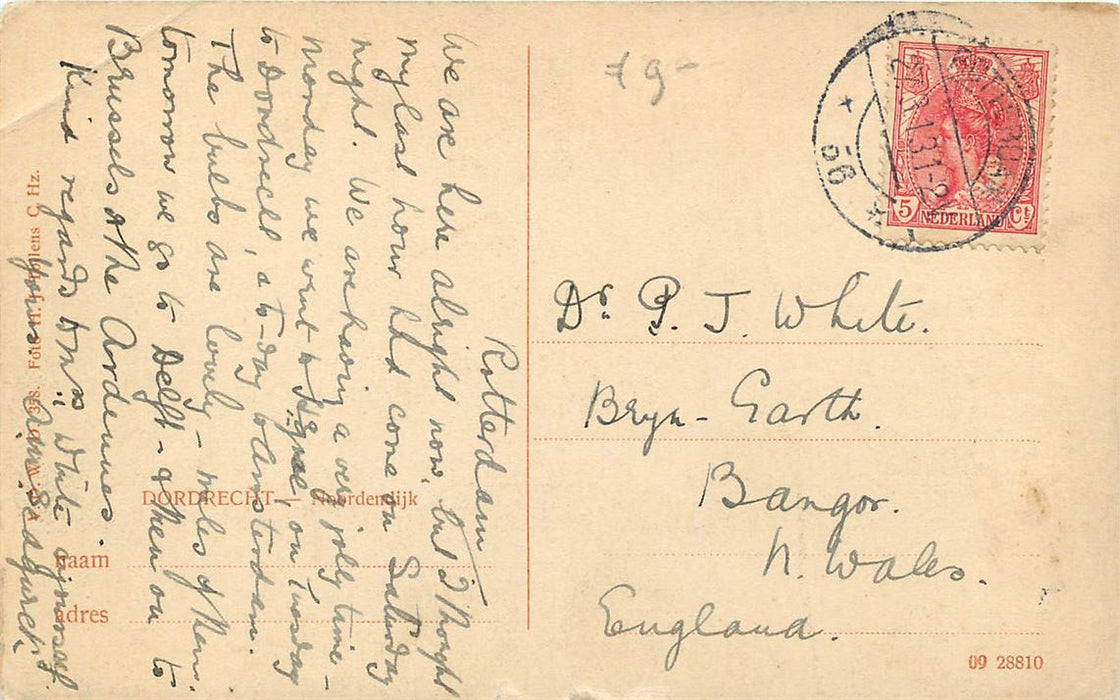 Rotterdam
We are here alright now, but I thought
my last hour had come on Saturday
night. We are having a very jolly time –
Monday we went to Hague, on Tuesday
to Dordrecht, & to-day to Amsterdam.
The bulbs are lovely – miles of them.
tomorrow we go to Delft – & then on to
Brussels & the Ardennes.
Kind regards to Mrs. White & yourself
yours
DORDRECHT — Noordendijk
naam
adres
318. Foto H.
C Hz.
19-
56
5 NEDERLAND Ct
Dr. P. J. White.
Bryn-Garth.
Bangor.
N. Wales.
England.
09 28810